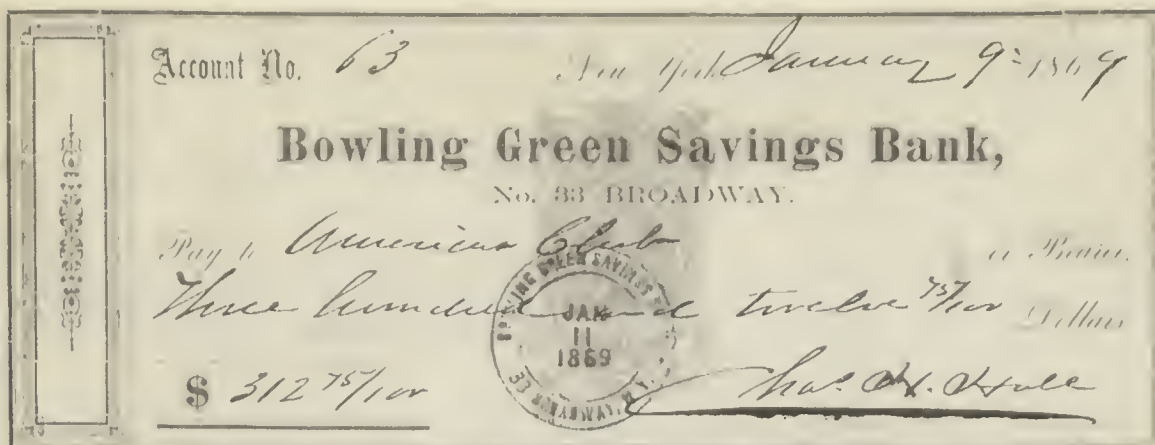 Account No. 63 New York January 9 1869
Bowling Green Savings Bank,
No. 33 BROADWAY.
Pay to Americus Club or Bearer,
Three hundred and twelve 75/100 Dollars
$ 312 75/100
Chas. H. Hall
BOWLING GREEN SAVINGS
JAN
11
1869
33 BROADWAY, N.Y.